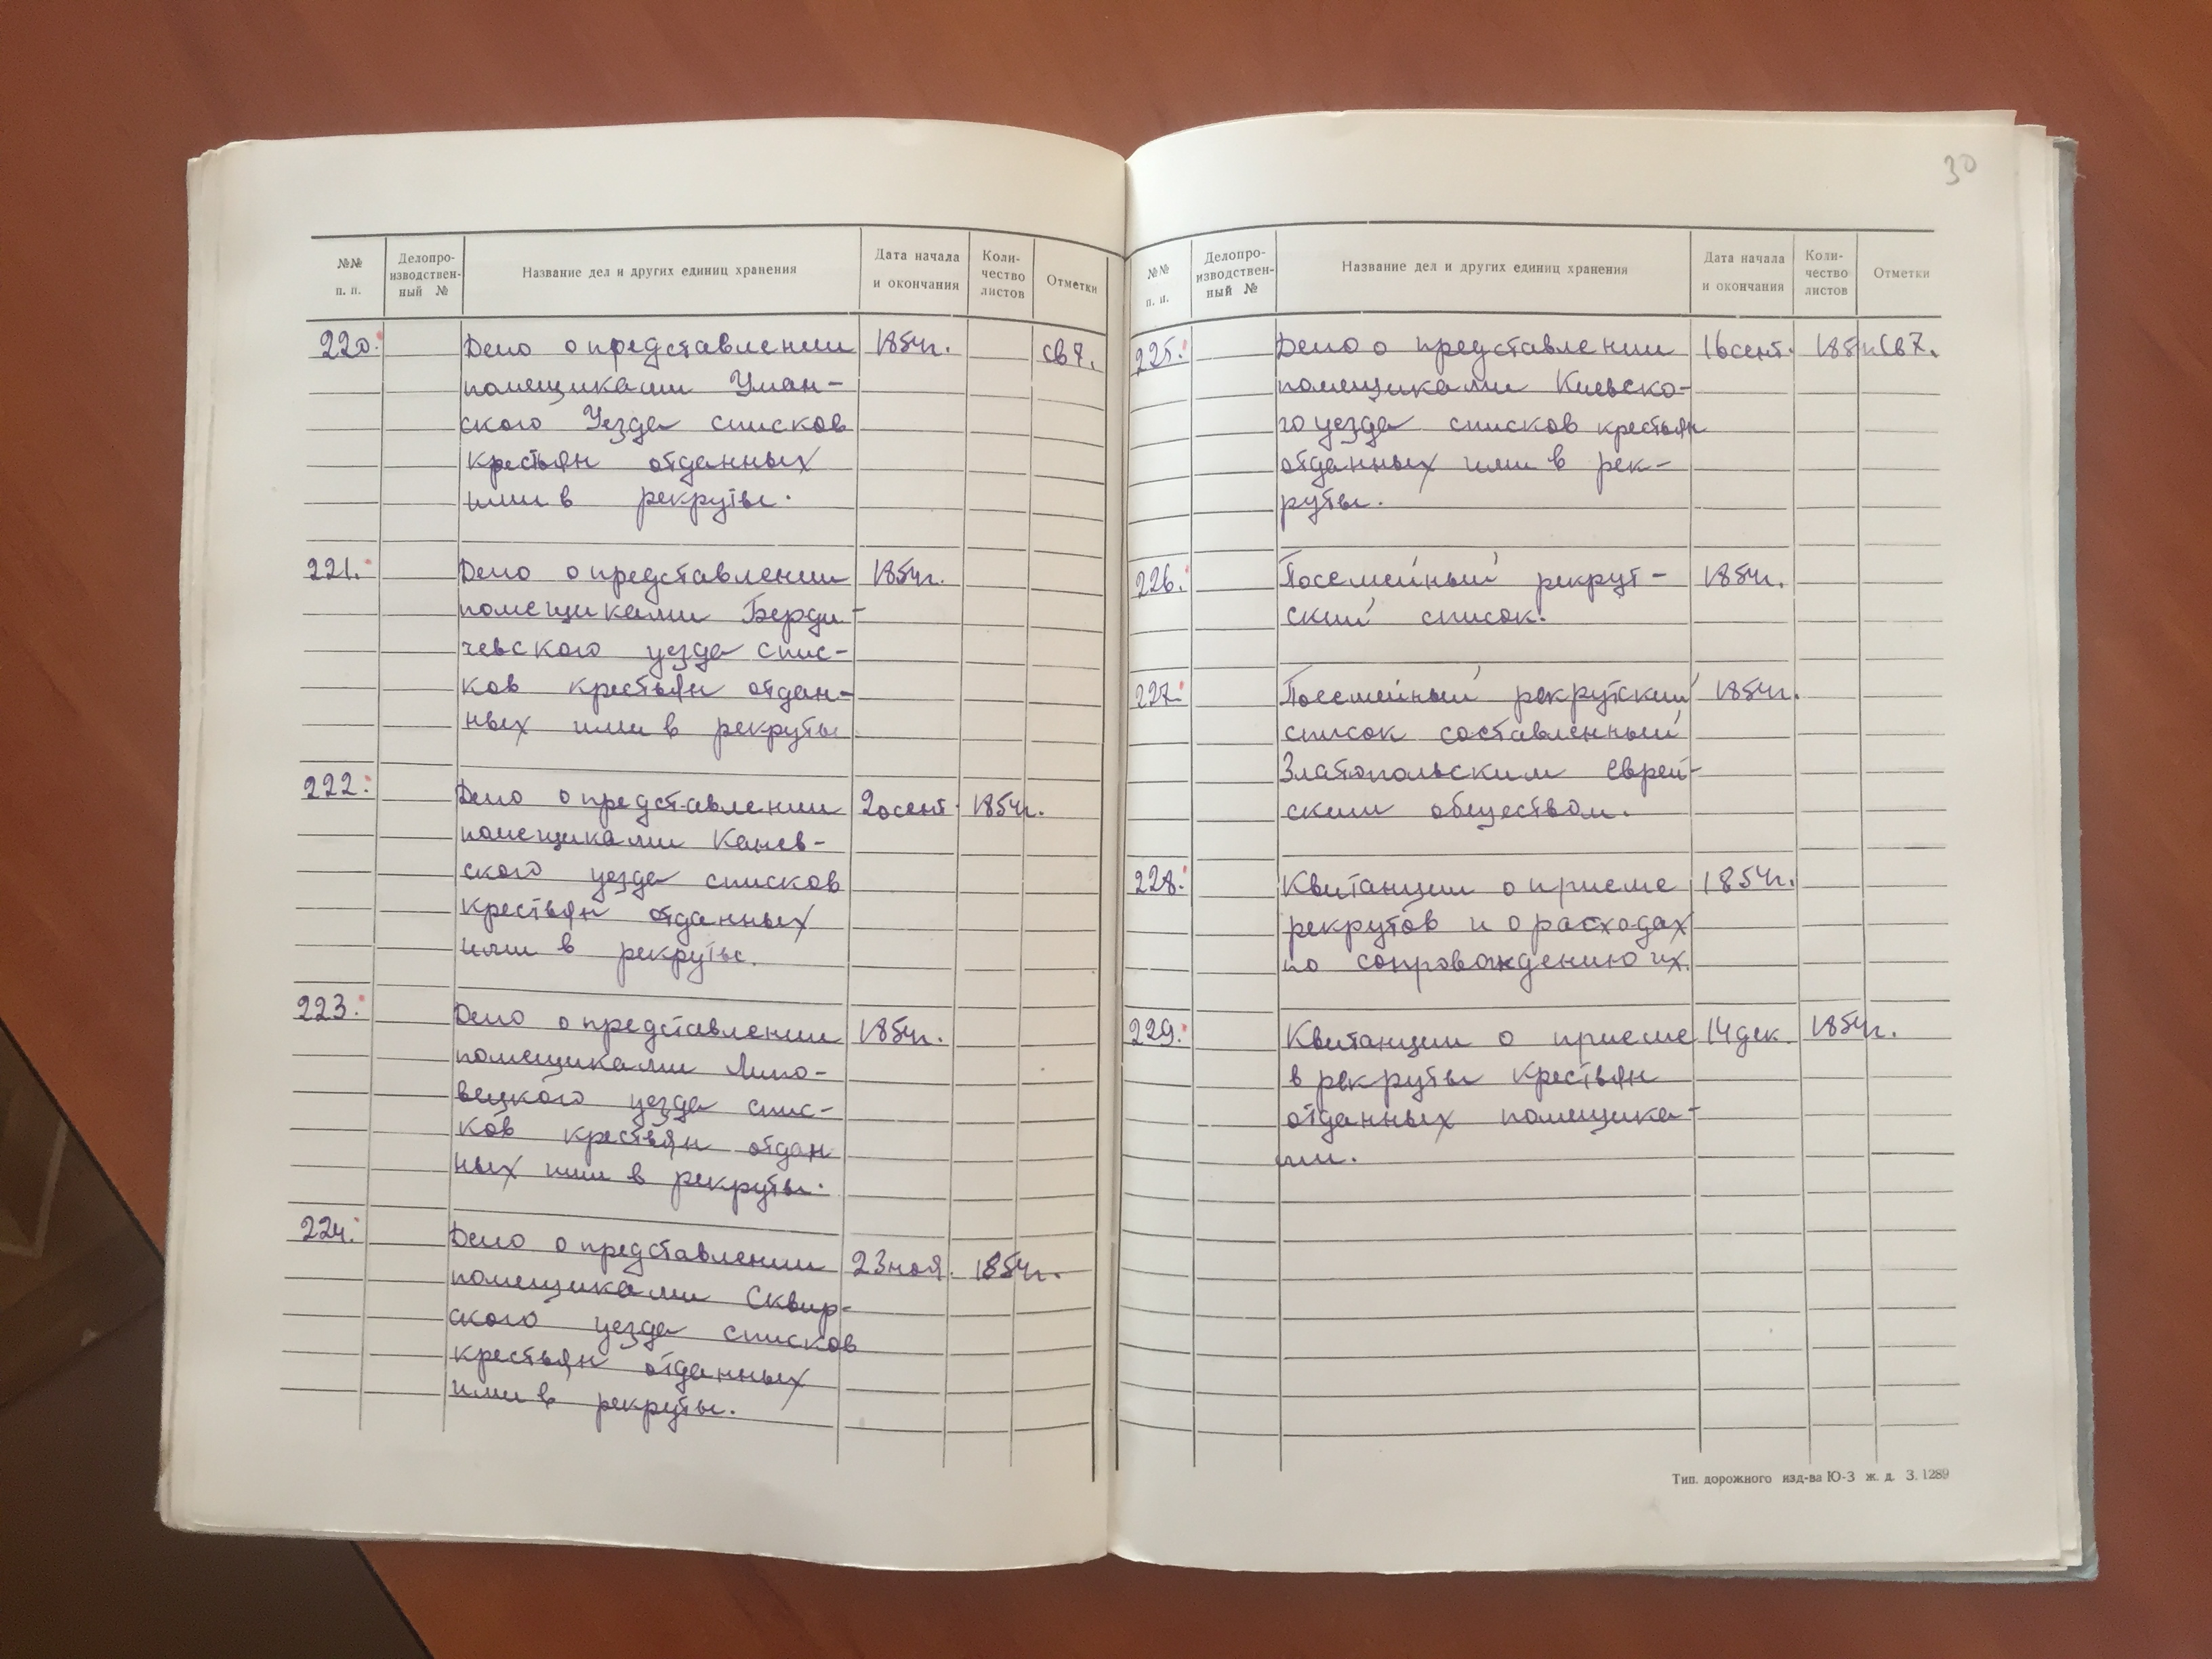 №№ п. п. Делопро-изводствен-ный № Название дел и других единиц хранения Дата начала и окончания Коли-чество листов Отметки
220. Дело о представлении 1854г. св7.
помещиками Уман-
ского Уезда списков
крестьян отданных
ими в рекруты.
221. Дело о представлении 1854г.
помещиками Берди-
чевского уезда спис-
ков крестьян отдан-
ных ими в рекруты
222. Дело о представлении 20сент. 1854г.
помещиками Канев-
ского уезда списков
крестьян отданных
ими в рекруты.
223. Дело о представлении 1854г.
помещиками Липо-
вецкого уезда спис-
ков крестьян отдан
ных ими в рекруты.
224. Дело о представлении 23ноя. 1854г.
помещиками Сквир-
ского уезда списков
крестьян отданных
ими в рекруты.
30
№№ п. п. Делопро-изводствен-ный № Название дел и других единиц хранения Дата начала и окончания Коли-чество листов Отметки
225. Дело о представлении 16сент. 1854г. св7.
помещиками Киевско-
го уезда списков крестьян
отданных ими в рек-
руты.
226. Посемейный рекрут- 1854г.
ский список.
227. Посемейный рекрутский 1854г.
список составленный
Златопольским еврей-
ским обществом.
228. Квитанции о приеме 1854г.
рекрутов и о расходах
по сопровождению их.
229. Квитанции о приеме 14дек. 1854г.
в рекруты крестьян
отданных помещика-
ми.
Тип. дорожного изд-ва Ю-З ж. д. З. 1289